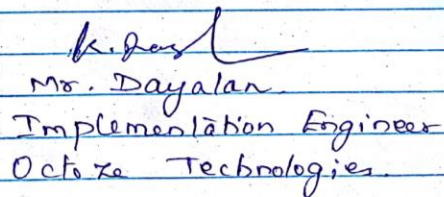 Mr. Dayalan.
Implementation Engineer
Octoze Technologies.